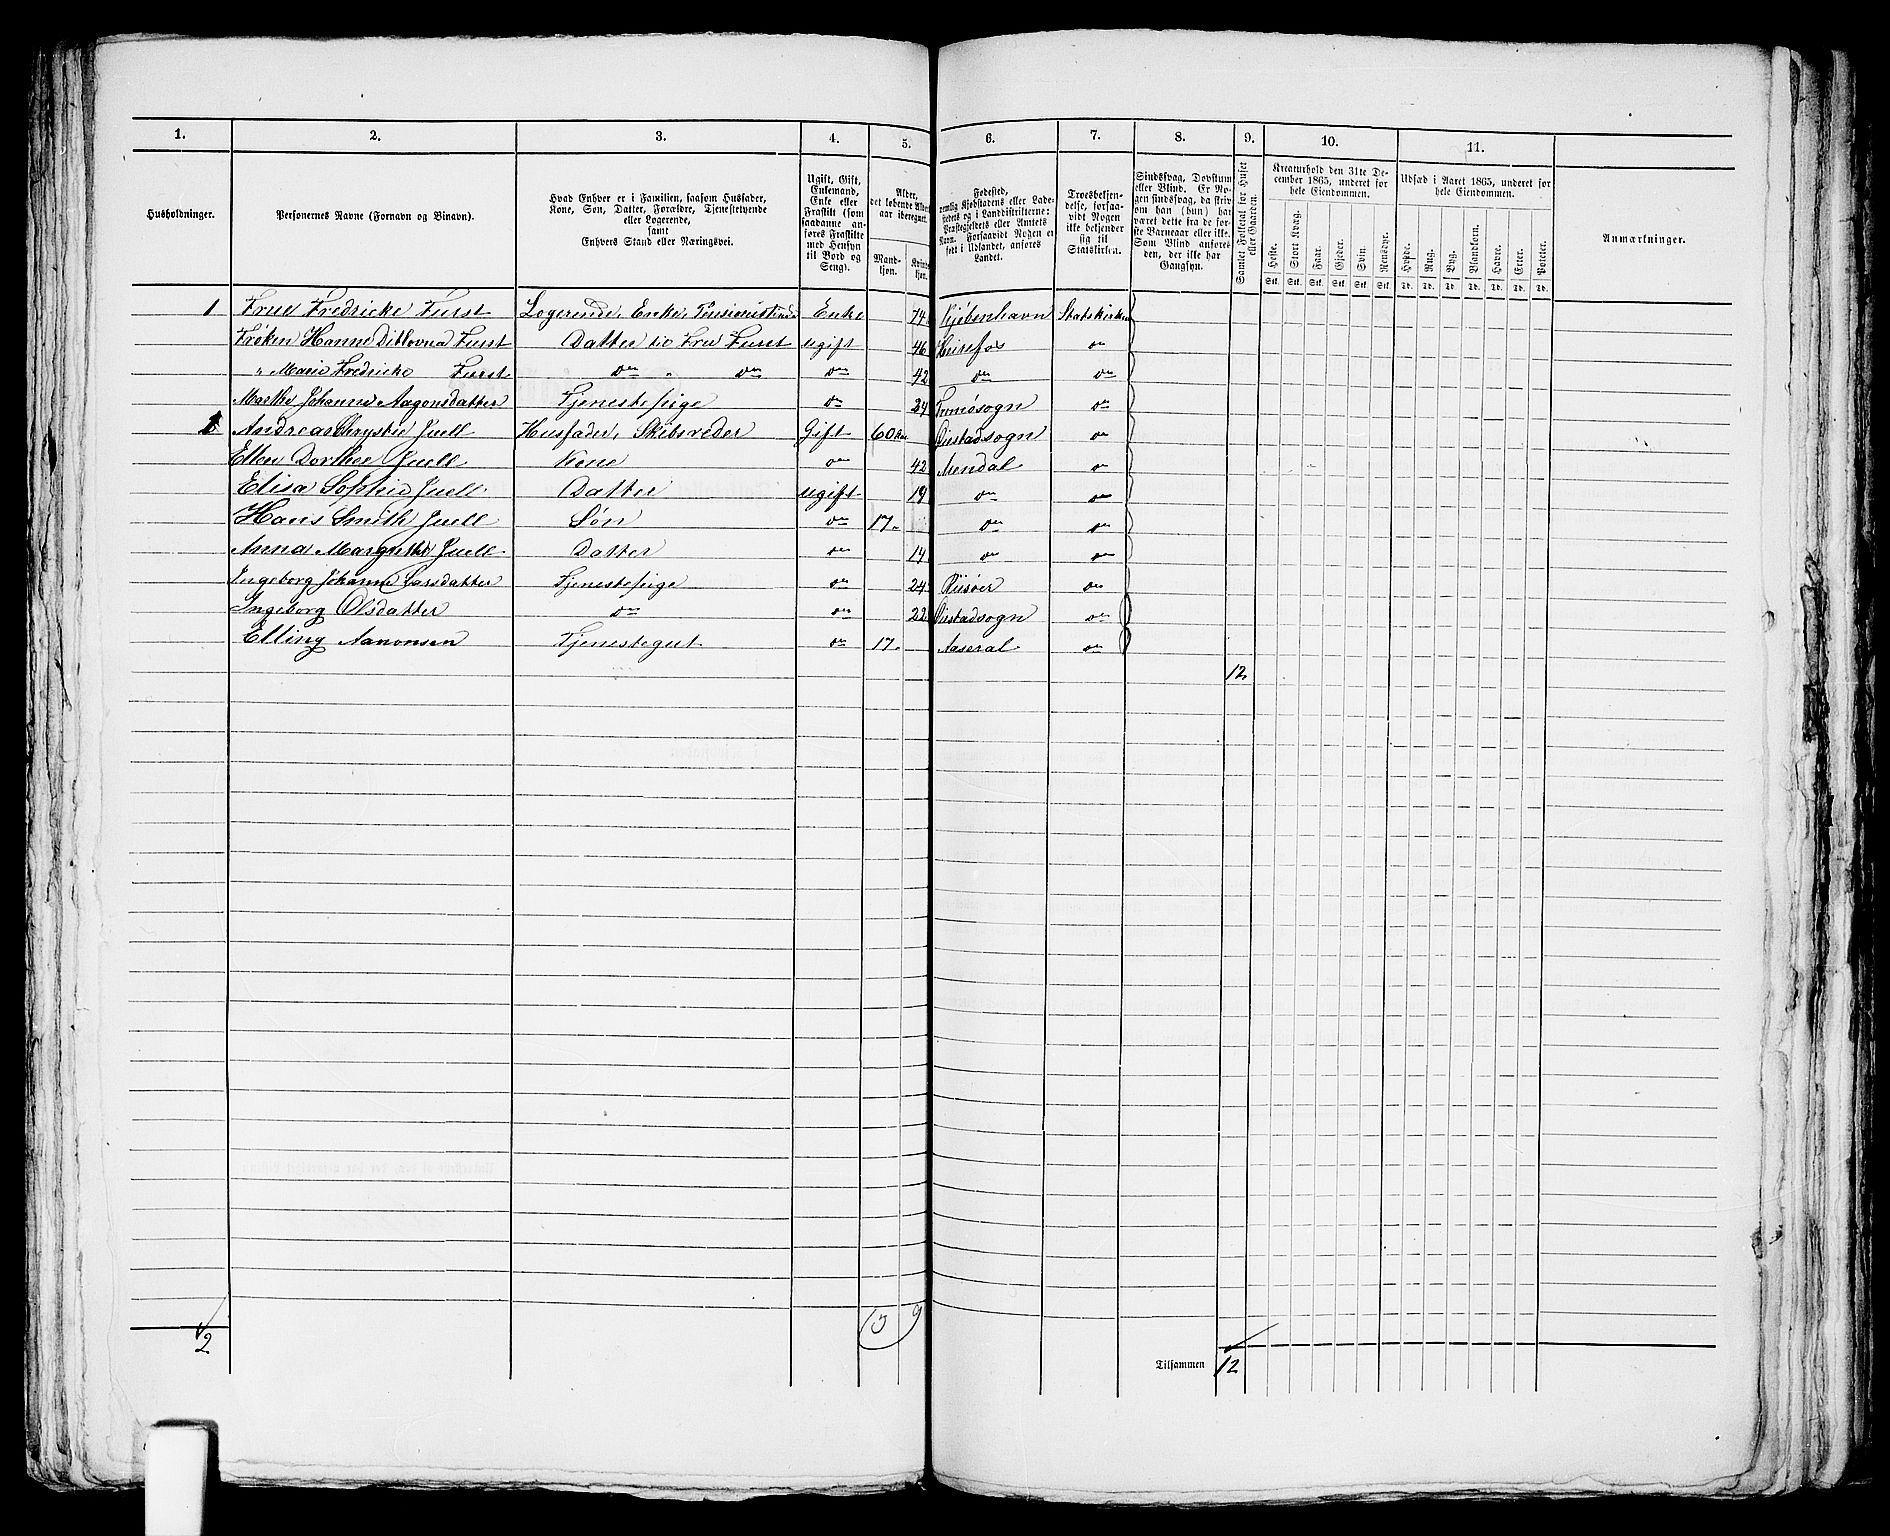 1. 2. 3. 4. 5. 6. 7. 8. 9. 10. 11.
Husholdninger.
Personernes Navne (Fornavn og Binavn).
Hvad Enhver er i Familien, saasom Husfader,
Kone, Søn, Datter, Forældre, Tjenestetyende
eller Logerende,
samt
Enhvers Stand eller Næringsvei.
Ugift, Gift,
Enkemand,
Enke eller
Fraskilt (som
saadanne an-
føres Fraskilte
med Hensyn
til Bord og
Seng).
Alder,
det løbende Alders-
aar iberegnet.
Mand-
kjøn.
Kvinde-
kjøn.
Fødested,
nemlig Kjøbstadens eller Lade-
stedets og i Landdistrikterne:
Præstegjeldets eller Amtets
Navn. Forsaavidt Nogen er
født i Udlandet, anføres
Landet.
Troesbekjen-
delse, forsaa-
vidt Nogen
ikke bekjender
sig til
Statskirken.
Sindssvag, Døvstum
eller Blind. Er No-
gen sindssvag, da skriv
om han (hun) har
været dette fra de før-
ste Barneaar eller ikke.
Som Blind anføres
den, der ikke har
Gangsyn.
Samlet Folketal for Huset
eller Gaarden.
Kreaturhold den 31te De-
cember 1865, underet for
hele Eiendommen.
Heste. Stort Kvæg. Faar. Gjeder. Svin. Rensdyr.
Stk. Stk. Stk. Stk. Stk. Stk.
Udsæd i Aaret 1865, underet for
hele Eiendommen.
Hvede. Rug. Byg. Blandkorn. Havre. Erter. Poteter.
Td. Td. Td. Td. Td. Td. Td.
Anmærkninger.
1 Frue Fredricke Furst Logerende, Enke, Pensionistinde Enke 74 Kjøbenhavn Statskirken
Frøken Hanne Ditlovna Furst Datter til Frue Furst ugift 46 do
" Marie Fredricke Furst do " do do 42 do do
Marthe Johanne Aagonsdatter Tjenestepige do 24 Tromøsogn do
1 Andreas Chrystie Juell Husfader, Skibsreder Gift 60 Øiestadsogn do
Ellen Dorthea Juell Kone do 42 Arendal do
Elisa Sophie Juell Datter ugift 19 do do
Hans Smith Juell Søn do 17 do do
Anna Margrethe Juell Datter do 14 do do
Ingeborg Johanne Larsdatter Tjenestepige do 24 Riisøer do
Ingeborg Olsdatter do do 22 Øiestadsogn do
Elling Aanonsen Tjenestegut do 17 Aaseral do
12
2 3 9
Tilsammen 12